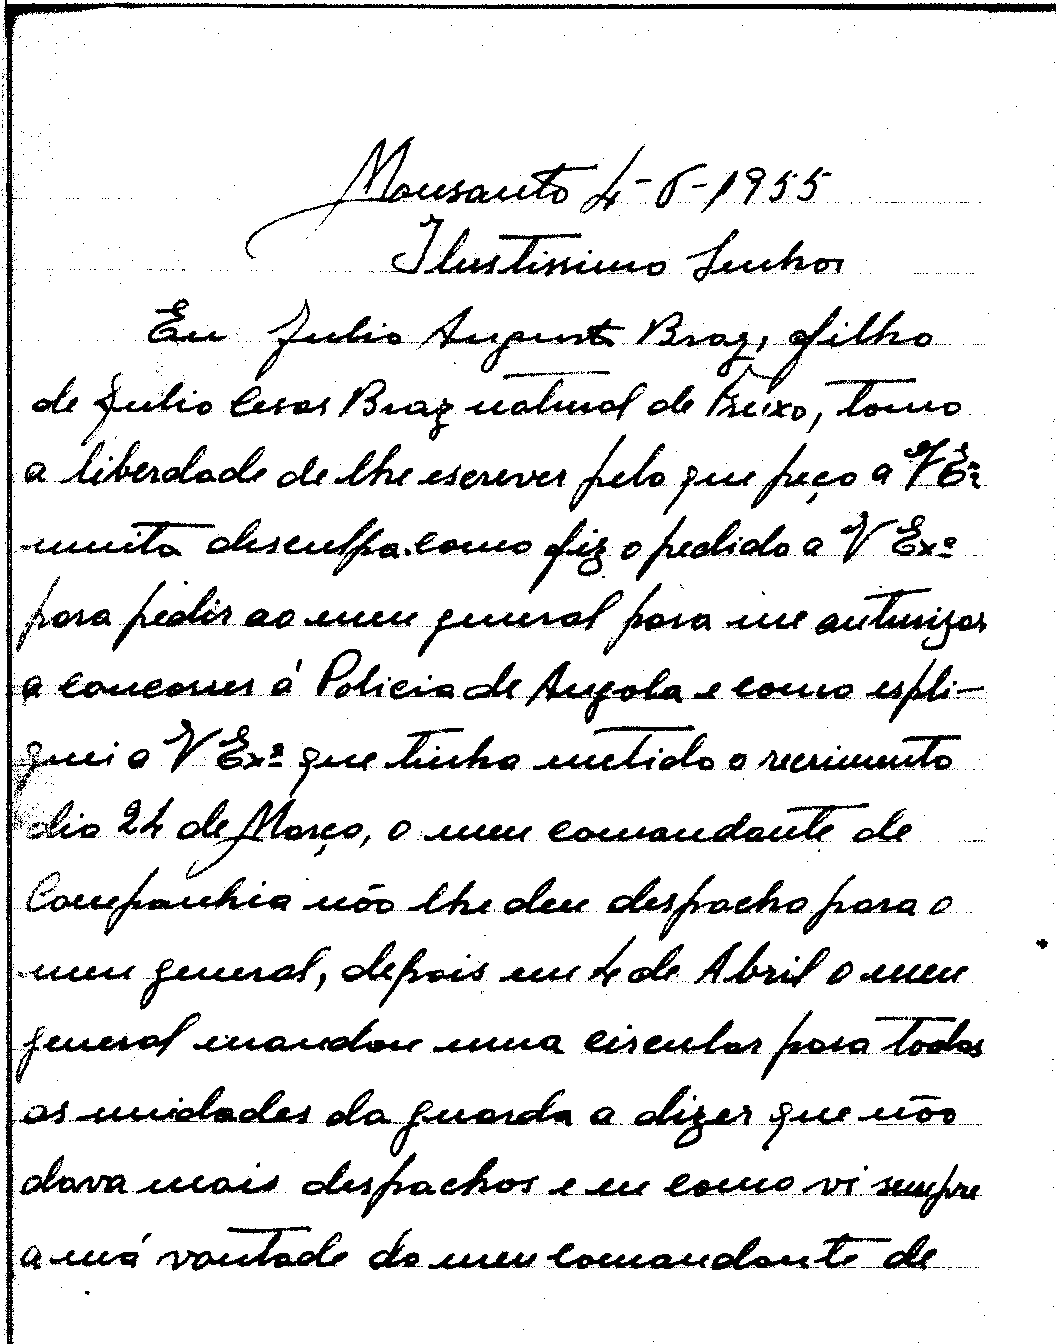 Monsanto 4-6-1955
Ilustissimo Senhor
Eu Julio August Braz, filho
de Julio Cesar Braz natural de Freixo, tomo
a liberdade de lhe escrever pelo que peço a V Exª
muita desculpa. como fiz o pedido a V Exª
para pedir ao meu general para me auturizar
a concorrer á Policia de Angola e como espli-
quei a V Exª que tinha metido o recrimento
dia 24 de Março, o meu comandante de
Companhia não lhe deu despacho para o
meu general, depois em 4 de Abril o meu
general mandou uma circular para todas
as unidades da guarda a dizer que não
dava mais despachos e eu como vi sempre
a má vontade do meu comandante de